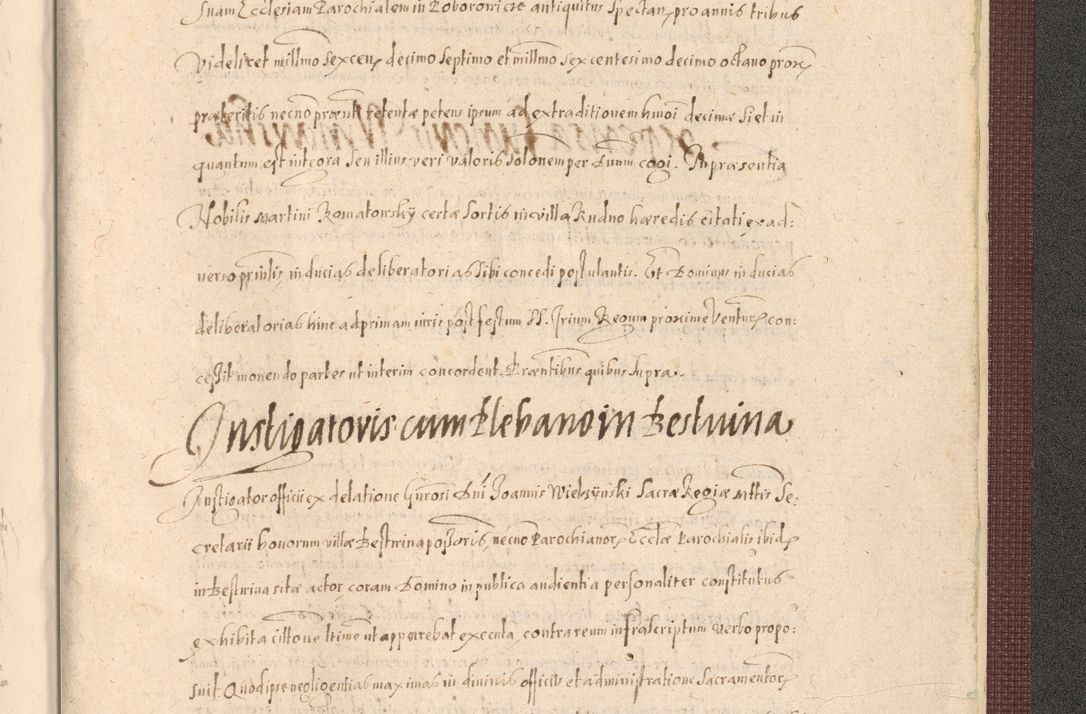 suam Ecclesiam Parochialem in Poborowicze antiquitus spectan, pro annis tribus
Videlicet millmo sexcen, decimo septimo et millmo sexcentesimo decimo octavo prox
præteritis necno prænti retentæ petens ipsum ad extraditionem hmoi decimæ si et in
quantum est integra seu illius veri valoris solonem per Dnum cogi. In præsentia
Nobilis Martini Komatowsky certæ sortis in villa Rudno hæredis citati ex ad:
verso pntis, inducias deliberatorias sibi concedi postulantis. Et Dominus inducias
deliberatorias hinc ad primam iuris post festum SS. Trium Regum proxime Ventur, con:
cessit monendo partes ut interim concordent. Præntibus quibus supra.
Instigatoris cum Plebano in Bestwina
Instigator officii ex delatione Gnrosi Dni Joannis Wieksynski Sacræ Regiæ Mttis Se:
cretarii bonorum villæ Bestwina possoris, necno Parochianor, Ecclæ Parochialis ibid,
in Bestwina sitæ actor coram Domino in publica audientia personaliter constitutus
exhibita cittone ltime ut apparebat executa, contra reum infrascriptum verbo propo:
suit. Quod ipse negligentias maximas in divinis officiis et administratione sacramentor,